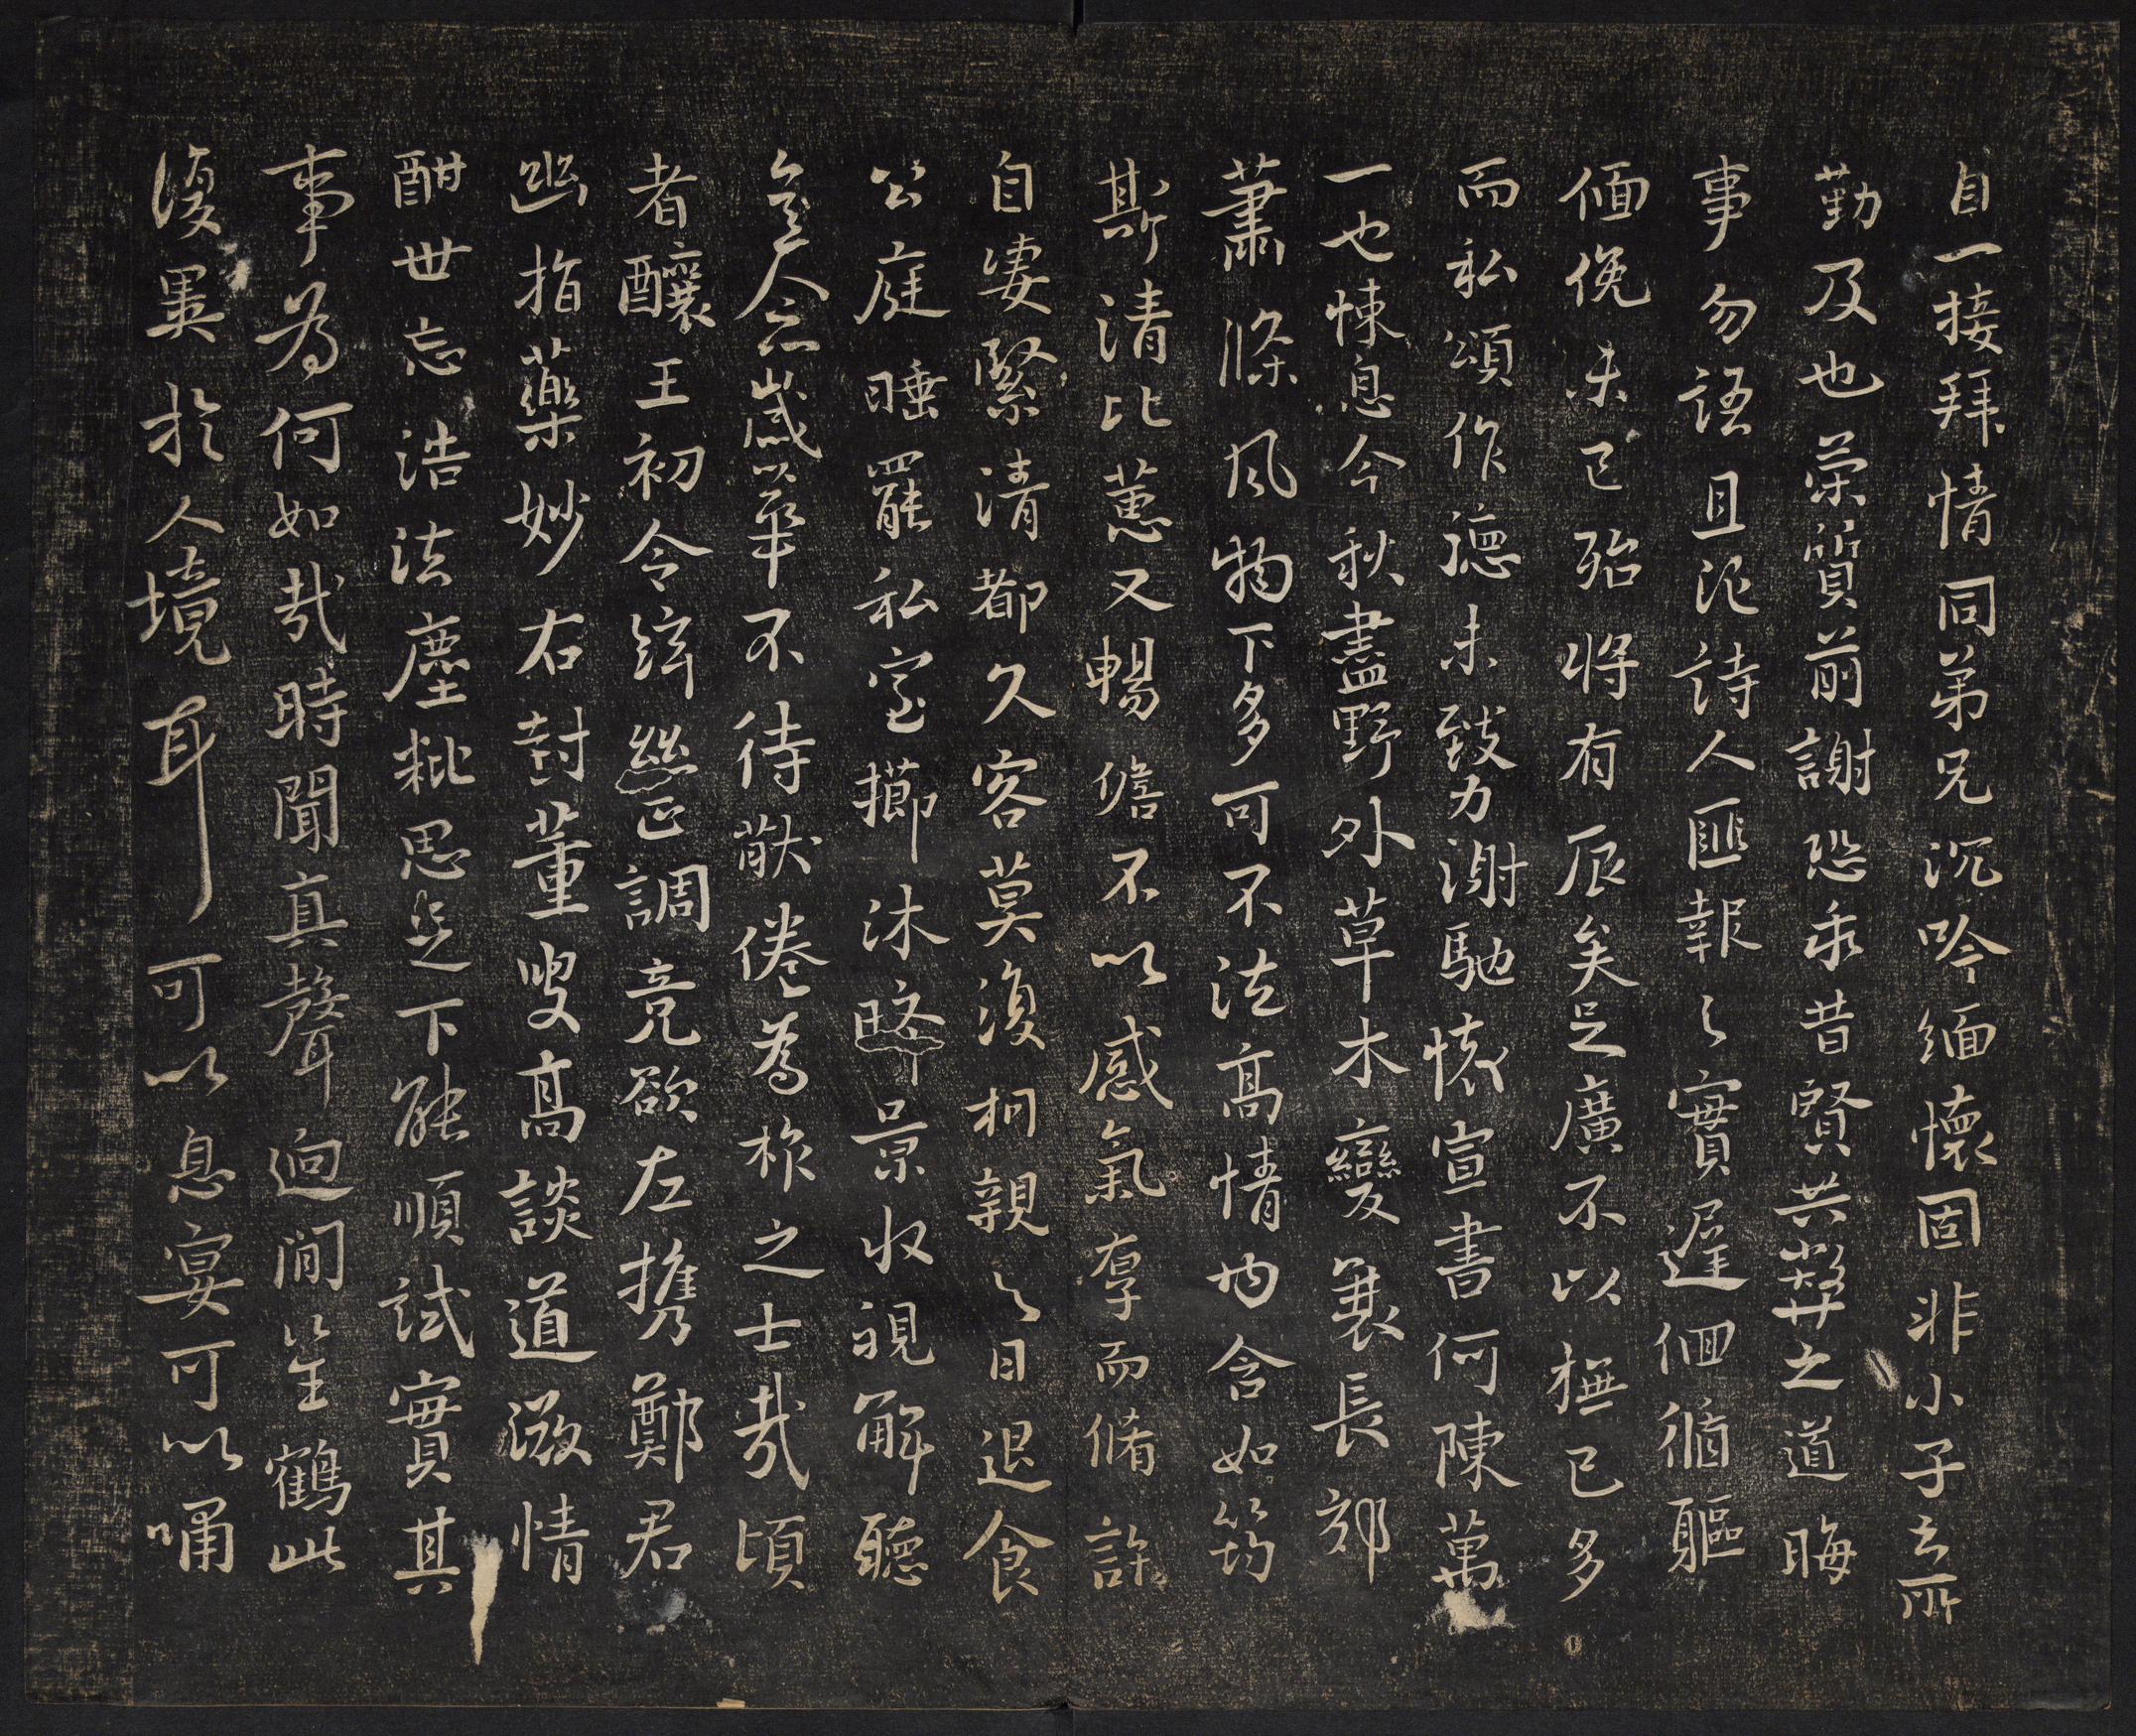 自一接拜情同弟兄沉吟緬懷固非小子之所
勤及也荣質前謝恐乖昔賢共弊之道晦
事勿語且泥詩人匪報之實遲佪循軀
僶俛未已殆將有辰矣足廣不以撫已多
而私頌作德未致力謝馳懷宣書何陳萬
一也悚息今秋盡野外草木變衰長郊
蕭條風物下多可不法高情内含如筠
斯清比蕙又暢儋不以感氣厚而脩許
自婁緊清都久客莫復相親之目退食
公庭睡罷私室擲沐略景收視解聽
無人念歲華不待猷倦為柞之士哉頃
者釀王初令繹絲正調竞欲左携鄭君
幽指藥妙右封董叟高談道激情
酣世忘浩法塵粃思足下能順試實其
事為何如哉時聞真聲迥闻笙鶴此
復異於人境耳可以息宴可以嘯